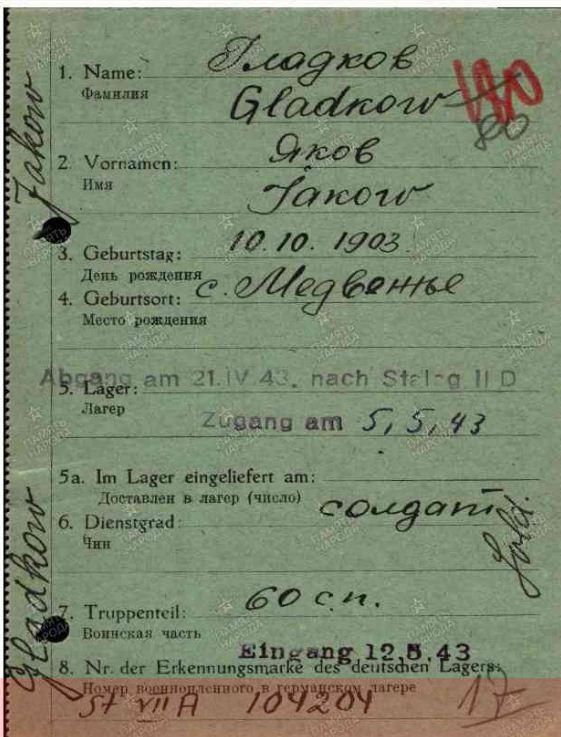 1. Name: Гладков
Фамилия
Gladkow
190
2. Vornamen: Яков
Имя
Jakow
3. Geburtstag: 10.10.1903
День рождения
4. Geburtsort: с. Медвежье
Место рождения
Abgang am 21. IV 43. nach Stalag II D
5. Lager:
Лагер
Zugang am 5, 5, 43
5a. Im Lager eingeliefert am:
Доставлен в лагер (число)
солдат
6. Dienstgrad:
Чин
Sold.
7. Truppenteil: 60 с.п.
Воинская часть
Eingang 12.5.43
8. Nr. der Erkennungsmarke des deutschen Lagers:
Номер военнопленного в германском лагере
St VII A 104204 17
Jakow
Gladkow
ПАМЯТЬ НАРОДА